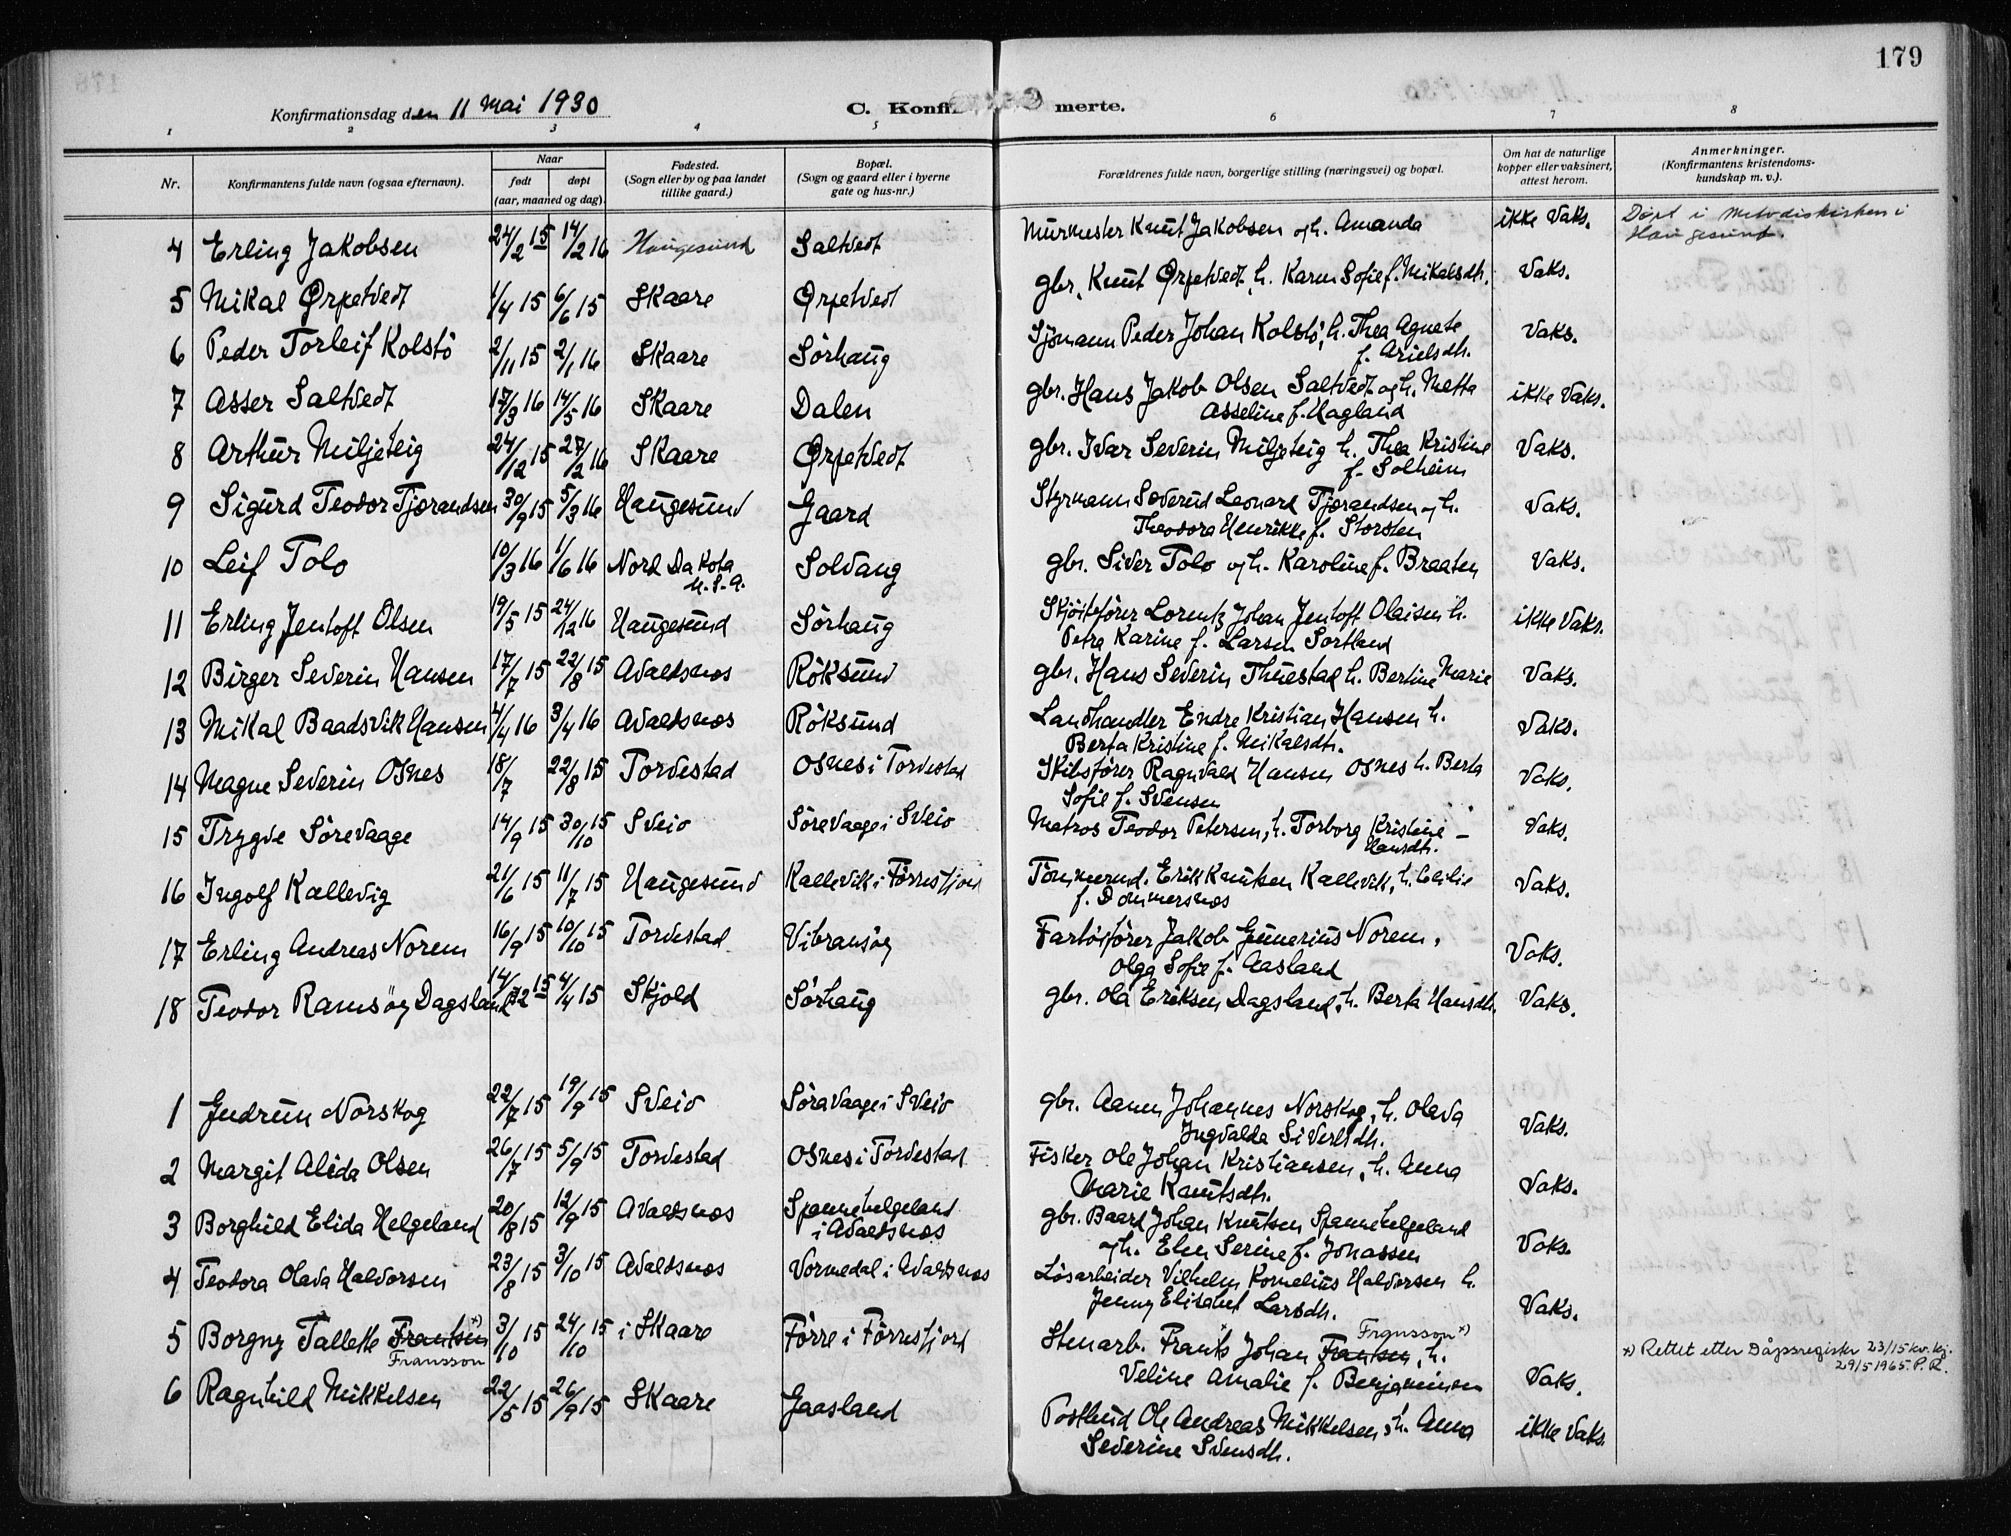 179
Konfirmationsdag den 11 mai 1930
C. Konfir merte.
1 2 3 4 5 6 7 8
Nr. Konfirmantens fulde navn (ogsaa efternavn). Naar født døpt (aar, maaned og dag). Fødested. (Sogn eller by og paa landet tillike gaard.) Bopæl. (Sogn og gaard eller i byerne gate og hus-nr.) Forældrenes fulde navn, borgerlige stilling (næringsvei) og bopæl. Om hat de naturlige kopper eller vaksinert, attest herom. Anmerkninger. (Konfirmantens kristendoms-kundskap m. v.).
4 Erling Jakobsen 24/2 15 14/2 16 Haugesund Saltvedt Murmester Knut Jakobsen og h. Amanda ikke vaks. Døpt i Metodistkirken i
Haugesund.
5 Mikal Ørpetvedt 1/4 15 6/6 15 Skaare Ørpetvedt gbr. Knut Ørpetvedt, h. Karen Sofie f. Mikalsdh. Vaks.
6 Peder Torleif Kolstö 2/11 15 2/1 16 Skaare Sörhaug Sjömann Peder Johan Kolstö, h. Thea Agnete Vaks.
f. Arielsdh.
7 Asser Saltvedt 17/3 16 14/5 16 Skaare Dalen gbr. Hans Jakob Olsen Saltvedt og h. Metta ikke Vaks.
Asseline f. Hagland
8 Arthur Miljeteig 24/12 15 27/2 16 Skaare Ørpetvedt gbr. Ivar Severin Miljeteig h. Thea Kristine Vaks.
f. Solheim
9 Sigurd Teodor Tjærandsen 30/9 15 5/3 16 Haugesund Gaard Styrmann Sæverud Leonard Tjærandsen og h. Vaks.
Theodora Henrikke f. Storsten
10 Leif Tolo 10/3 16 1/6 16 Nord Dakota Solvang gbr. Siver Tolo og h. Karoline f. Braaten Vaks.
U.S.A.
11 Erling Jentoft Olsen 19/5 15 24/12 16 Haugesund Sörhaug Skjöitefører Lorentz Johan Jentoft Olaisen h. ikke Vaks.
Petra Karine f. Larsen Sortland
12 Birger Severin Hansen 17/7 15 22/8 15 Avaldsnes Röksund gbr. Hans Severin Thuestad h. Bertine Marie Vaks.
13 Mikal Baadsvik Hansen 4/4 16 3/4 16 Avaldsnes Röksund Landhandler Endre Kristian Hansen h. Vaks.
Berta Kristine f. Mikalsdh.
14 Magne Severin Osnes 18/7 22/8 15 Torvestad Osnes i Torvestad Skibsfører Ragnvald Hansen Osnes h. Berta Vaks.
Sofie f. Svensen
15 Trygve Sörevaage 14/9 15 30/10 15 Sveio Sörevaage i Sveio Matros Teodor Petersen, h. Torborg Kristine – Vaks.
Hansdh.
16 Ingolf Kallevig 21/6 15 11/7 15 Haugesund Kallevik i Førresfjord Tömmermd. Erik Knutsen Kallevik, h. Cecilie Vaks.
f. Dommersnes
17 Erling Andreas Norem 16/9 15 10/10 15 Torvestad Vibransöy Fartöifører Jakob Gunerius Norem, Vaks.
Olga Sofie f. Aasland
18 Teodor Ramsöy Dagsland 14/2 15 4/4 15 Skjold Sörhaug gbr. Ola Eriksen Dagsland, h. Berta Hansdh. Vaks.
1 Gudrun Norskog 22/7 15 19/9 15 Sveio Söravaage i Sveio gbr. Aanen Johannes Norskog, h. Olava Vaks.
Ingvalda Sivertsdh.
2 Margit Alida Olsen 26/7 15 5/9 15 Torvestad Osnes i Torvestad Fisker Ole Johan Kristiansen, h. Anna Vaks.
Marie Knutsdh.
3 Borghild Elida Helgeland 20/8 15 12/9 15 Avaldsnes Spannehelgeland gbr. Baard Johan Knutsen Spannehelgeland Vaks.
i Avaldsnes og h. Elen Serine f. Jonassen
4 Teodora Olava Halvorsen 23/8 15 3/10 15 Avaldsnes Vormedal i Avaldsnes Lösarbeider Vilhelm Kornelius Halvorsen h. Vaks.
Jenny Elisabet Larsdh.
5 Borgny Tallette Frantsen x) 3/10 15 24/10 15 i Skaare Förre i Förresfjord Stenarb. Frants Johan Frantsen, h. Fransson x) x) Rettet etter Dåpsregister 23/15 kv. kj.
Fransson Veline Amalie f. Benjaminsen Vaks. 29/5 1965 P.R.
6 Ragnhild Mikkelsen 22/5 15 26/9 15 Skaare Gaasland Postbud Ole Andreas Mikkelsen, h. Anna ikke Vaks.
Severine Svensdh.